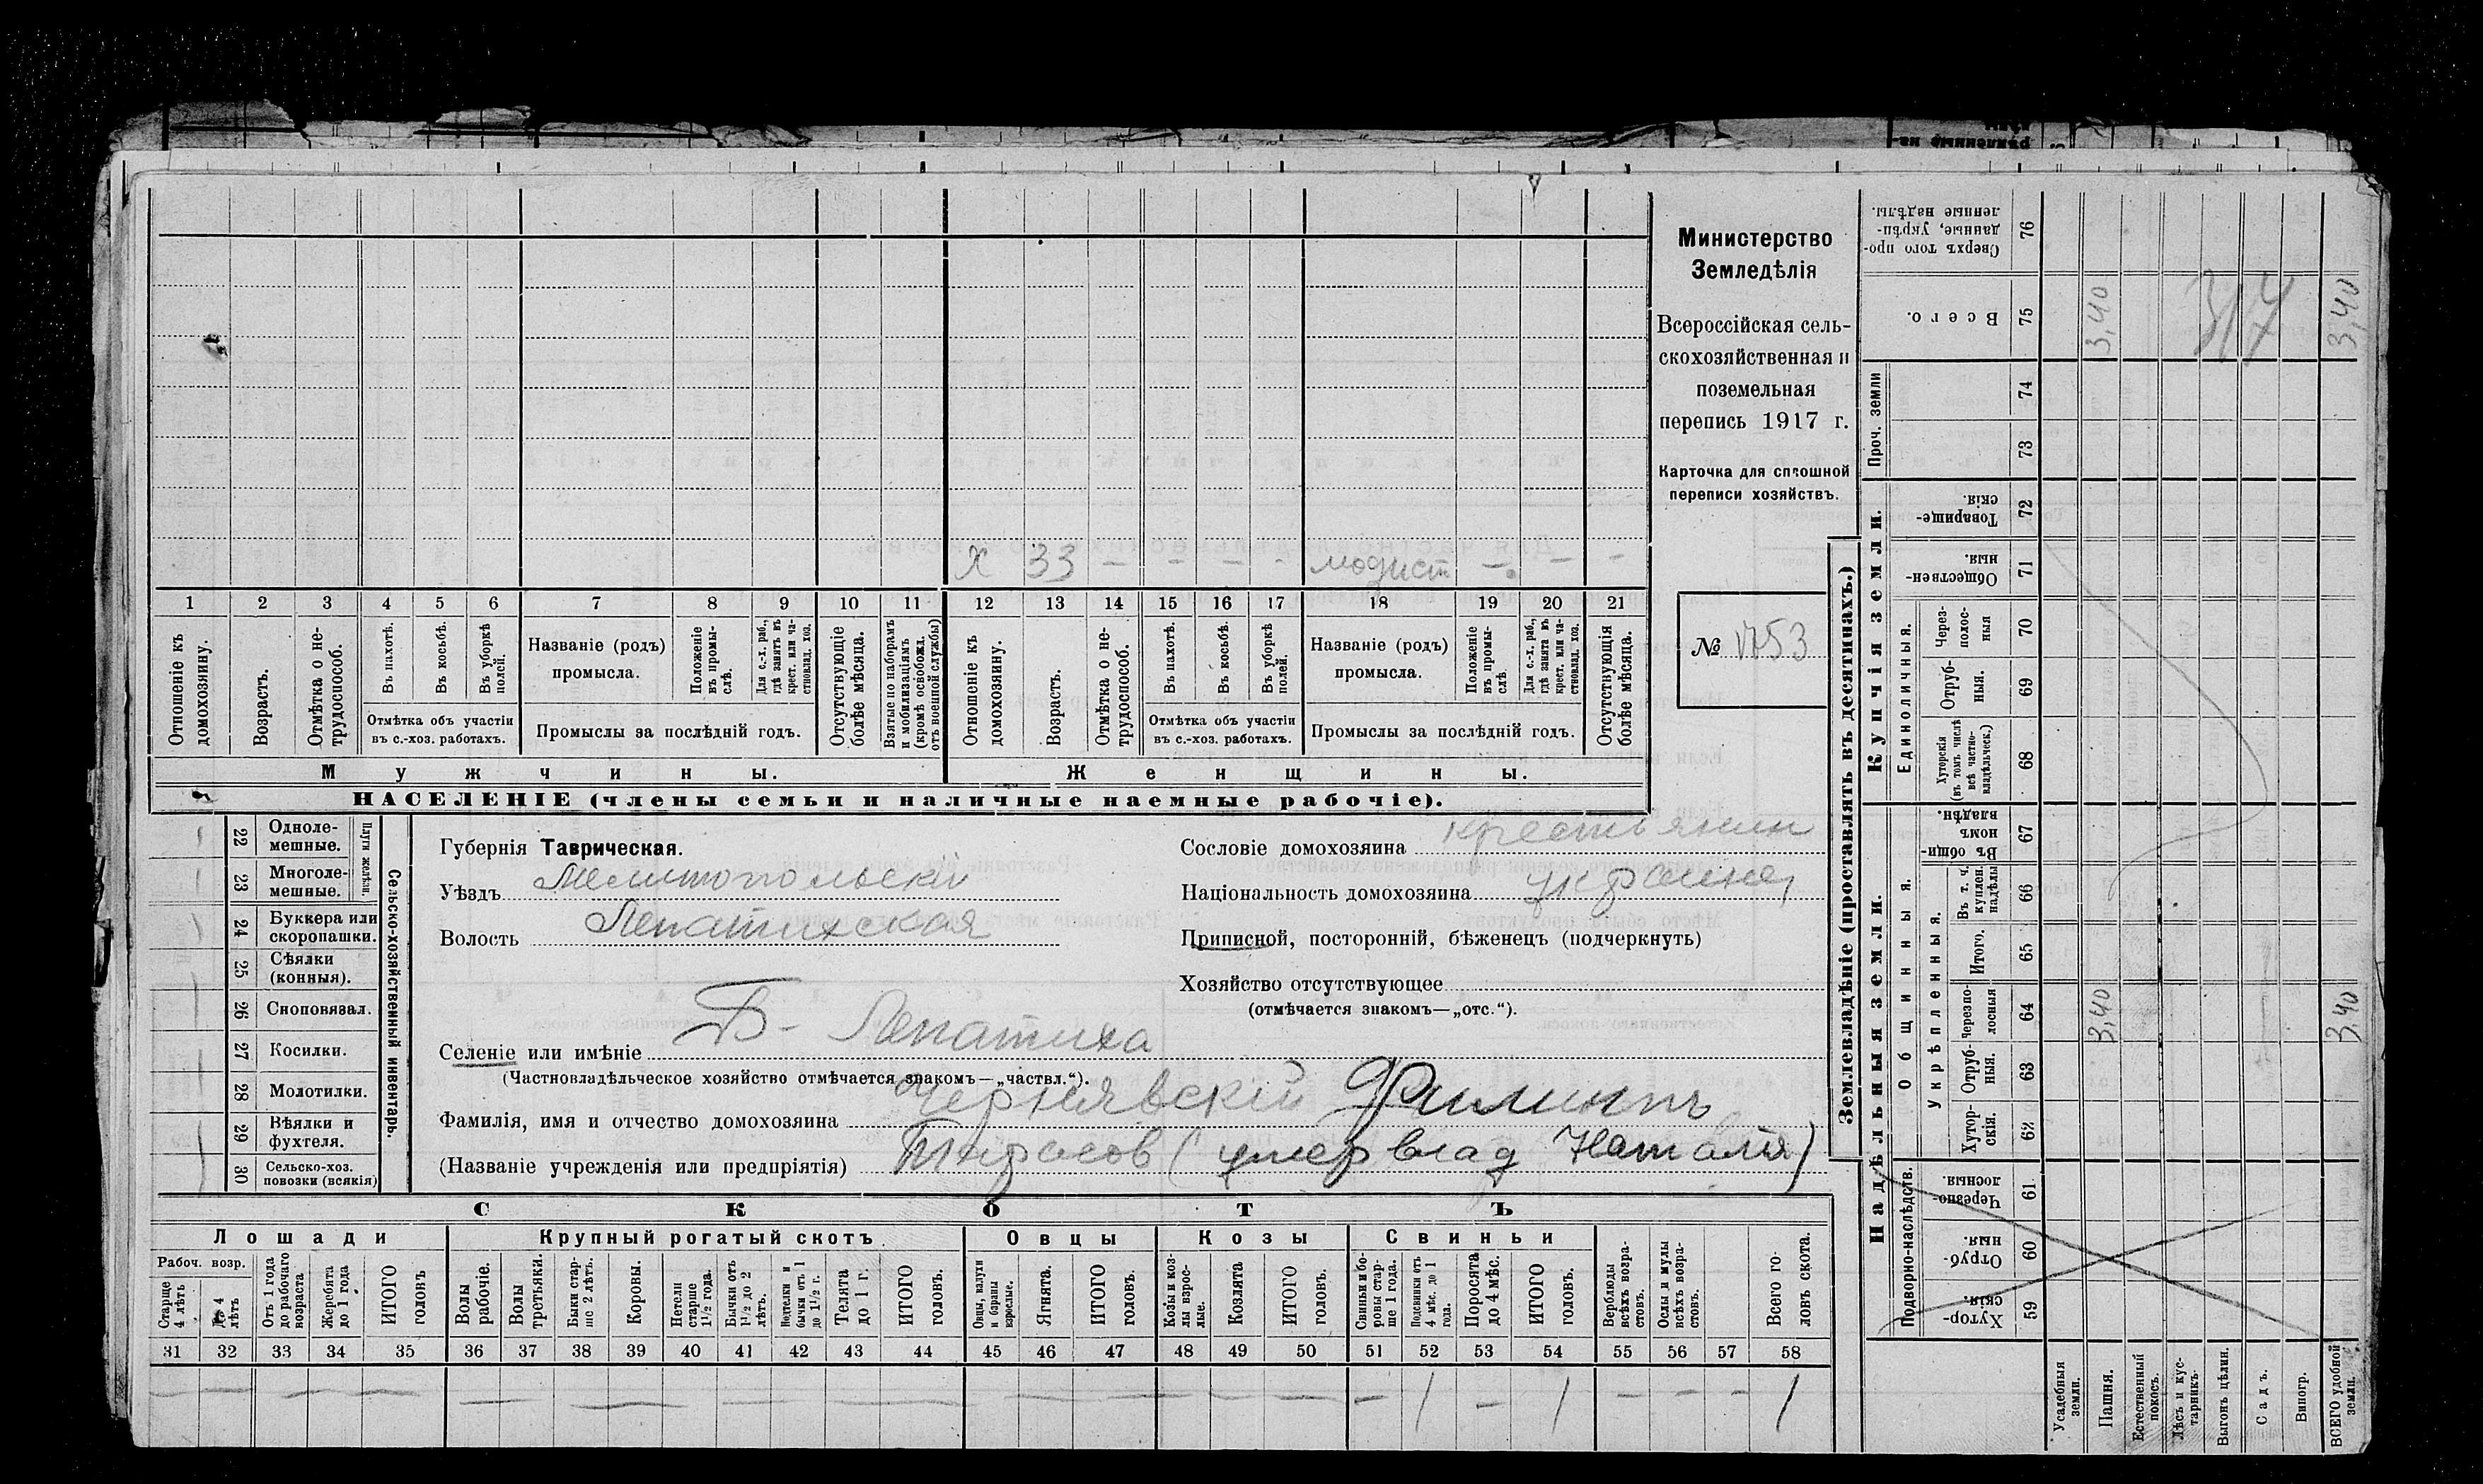 Министерство
Земледѣлія
Всероссійская сель-
скохозяйственная и
поземельная
перепись 1917 г.
Карточка для сплошной
переписи хозяйствъ.
№ 1753
Х 33 – – – – модист – – –
1 2 3 4 5 6 7 8 9 10 11 12 13 14 15 16 17 18 19 20 21
Отношеніе къ домохозяину.
Возрастъ.
Отмѣтка о не-трудоспособ.
Въ пахотѣ.
Въ косьбѣ.
Въ уборкѣ полей.
Отмѣтка объ участіи въ с.-хоз. работахъ.
Названіе (родъ) промысла.
Положеніе въ промы-слѣ.
Для с.-х. раб., гдѣ занятъ въ крест. или ча-стновлад. хоз.
Промыслы за послѣдній годъ.
Отсутствующіе болѣе мѣсяца.
Взятые по наборамъ и мобилизаціямъ (кромѣ освобожд. отъ военной службы)
Отношеніе къ домохозяину.
Возрастъ.
Отмѣтка о не-трудоспособ.
Въ пахотѣ.
Въ косьбѣ.
Въ уборкѣ полей.
Отмѣтка объ участіи въ с.-хоз. работахъ.
Названіе (родъ) промысла.
Положеніе въ промы-слѣ.
Для с.-х. раб., гдѣ занята въ крест. или ча-стновлад. хоз.
Промыслы за послѣдній годъ.
Отсутствующія болѣе мѣсяца.
Мужчины.
Женщины.
НАСЕЛЕНІЕ (члены семьи и наличные наемные рабочіе).
Сельско-хозяйственный инвентарь.
Плуги желѣзн.
22 Одноле-мешные.
23 Многоле-мешные.
24 Буккера или скоропашки.
25 Сѣялки (конныя).
26 Сноповязал.
27 Косилки.
28 Молотилки.
29 Вѣялки и фухтеля.
30 Сельско-хоз. повозки (всякія)
Губернія Таврическая.
Уѣздъ Мелитопольскій
Волость Лепатихская
Селеніе или имѣніе Б- Лепатиха
(Частновладѣльческое хозяйство отмѣчается знакомъ—„частвл.“).
Фамилія, имя и отчество домохозяина Чернявскій Филиппъ
(Названіе учрежденія или предпріятія) Тарасов (умер влад Наталія)
Сословіе домохозяина крестьянин
Національность домохозяина украинец
Приписной, посторонній, бѣженецъ (подчеркнуть)
Хозяйство отсутствующее
(отмѣчается знакомъ—„отс.“).
СКОТЪ
Лошади
Крупный рогатый скотъ
Овцы
Козы
Свиньи
Рабоч. возр.
Старше 4 лѣтъ
До 4 лѣтъ
Отъ 1 года до рабочаго возраста
Жеребята до 1 года
ИТОГО головъ
Волы рабочіе.
Волы третьяки.
Быки стар-ше 2 лѣтъ.
Коровы.
Нетели старше 1½ года.
Бычки отъ 1½ до 2 лѣтъ.
Подтелки и бычки отъ 1 до 1½ г.
Телята до 1 г.
ИТОГО головъ.
Овцы, валухи и бараны взрослые.
Ягнята.
ИТОГО головъ.
Козы и коз-лы взрос-лые.
Козлята
ИТОГО головъ.
Свиньи и бо-ровы стар-ше 1 года.
Подсвинки отъ 4 мѣс. до 1 года.
Поросята до 4 мѣс.
ИТОГО головъ.
Верблюды всѣхъ возра-стовъ.
Ослы и мулы всѣхъ возра-стовъ.
Всего го-ловъ скота.
31 32 33 34 35 36 37 38 39 40 41 42 43 44 45 46 47 48 49 50 51 52 53 54 55 56 57 58
– 1 – 1 – – – 1
Землевладѣніе (проставлять въ десятинахъ.)
Надѣльныя земли.
Купчія земли.
Проч. земли
Подворно-наслѣдств.
Общинныя.
Укрѣпленныя.
Единоличныя.
76 Сверхъ того про-данные, укрѣп-ленные надѣлы.
75 Всего. 3,40 3,40
317
74
73
72 Товарище-скія.
71 Обществен-ныя.
70 Через-полос-ныя
69 Отруб-ныя.
68 Хуторскія (въ томъ числѣ всѣ частно-владѣльческ.)
67 Въ общи-номъ владѣн.
66 Въ т. ч. куплен. надѣлы
65 Итого.
64 Черезпо-лосныя 3,40 3,40
63 Отруб-ныя.
62 Хутор-скія.
61 Черезпо-лосныя.
60 Отруб-ныя.
59 Хутор-скія.
Усадебныя земли.
Пашня.
Естественный покосъ.
Лѣсъ и кус-тарникъ.
Выгонъ цѣлин.
Садъ.
Виногр.
ВСЕГО удобной земли.